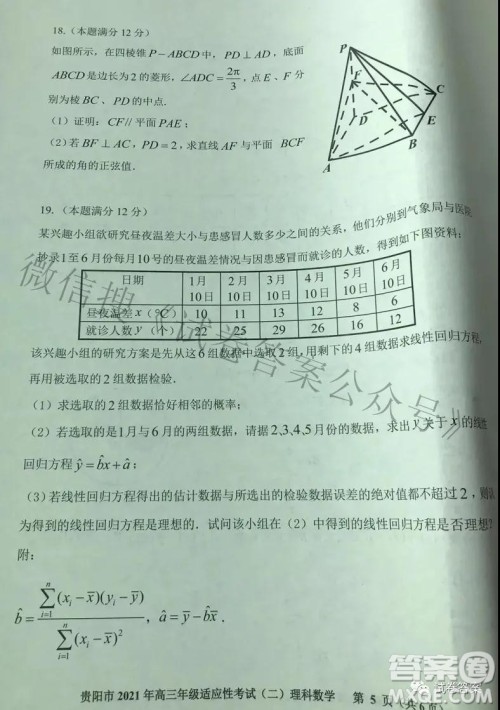 18.（本题满分 12 分）
如图所示，在四棱锥 P－ABCD 中，PD⊥AD，底面
ABCD 是边长为 2 的菱形，∠ADC=2π/3，点 E、F 分
别为棱 BC、PD 的中点.
（1）证明：CF// 平面 PAE；
（2）若 BF⊥AC，PD=2，求直线 AF 与平面 BCF
所成的角的正弦值.
P
F
C
D
E
B
A
19.（本题满分 12 分）
某兴趣小组欲研究昼夜温差大小与患感冒人数多少之间的关系，他们分别到气象局与医院
抄录 1 至 6 月份每月 10 号的昼夜温差情况与因患感冒而就诊的人数，得到如下图资料：
日期 1月10日 2月10日 3月10日 4月10日 5月10日 6月10日
昼夜温差 x（℃） 10 11 13 12 8 6
就诊人数 y（个） 22 25 29 26 16 12
该兴趣小组的研究方案是先从这 6 组数据中选取 2 组，用剩下的 4 组数据求线性回归方程，
再用被选取的 2 组数据检验.
（1）求选取的 2 组数据恰好相邻的概率；
（2）若选取的是 1 月与 6 月的两组数据，请据 2,3,4,5 月份的数据，求出 y 关于 x 的线性
回归方程 ŷ=b̂x+â；
（3）若线性回归方程得出的估计数据与所选出的检验数据误差的绝对值都不超过 2，则认
为得到的线性回归方程是理想的. 试问该小组在（2）中得到的线性回归方程是否理想？
附：
b̂=∑ᵢ₌₁ⁿ(xᵢ−x̄)(yᵢ−ȳ)/∑ᵢ₌₁ⁿ(xᵢ−x̄)²，â=ȳ−b̂x̄.
贵阳市 2021 年高三年级适应性考试（二）理科数学 第 5 页（共 6 页）
微信搜《试卷答案公众号》
答案圈
MXQE.COM